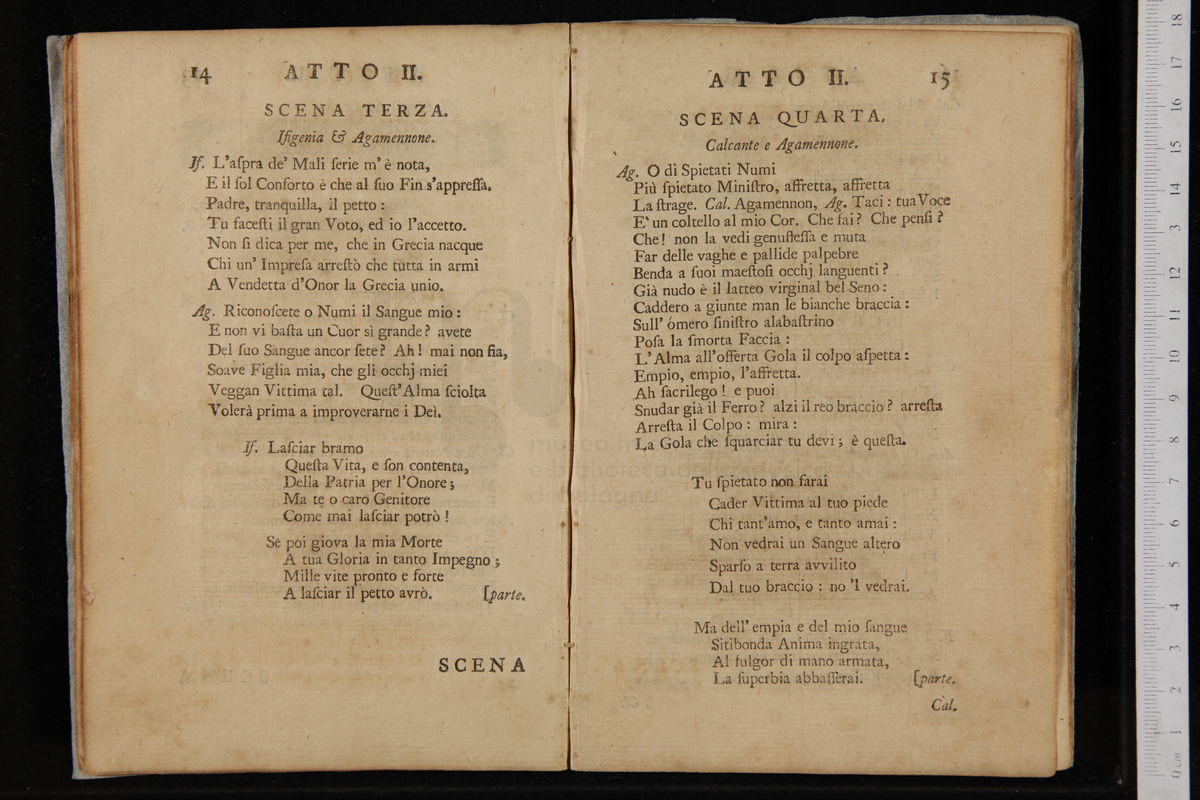 14 ATTO II.
SCENA TERZA.
Ifigenia & Agamennone.
If. L'aſpra de' Mali ſerie m' è nota,
E il ſol Conforto è che al ſuo Fin s'appreſſa.
Padre, tranquilla, il petto :
Tu faceſti il gran Voto, ed io l'accetto.
Non ſi dica per me, che in Grecia nacque
Chi un' Impreſa arreſtò che tutta in armi
A Vendetta d'Onor la Grecia unio.
Ag. Riconoſcete o Numi il Sangue mio :
E non vi baſta un Cuor sì grande ? avete
Del ſuo Sangue ancor ſete ? Ah ! mai non fia,
Soave Figlia mia, che gli occhj miei
Veggan Vittima tal. Queſt'Alma ſciolta
Volerà prima a improverarne i Dei.
If. Laſciar bramo
Queſta Vita, e ſon contenta,
Della Patria per l'Onore ;
Ma te o caro Genitore
Come mai laſciar potrò !
Se poi giova la mia Morte
A tua Gloria in tanto Impegno ;
Mille vite pronto e forte
A laſciar il petto avrò. [parte.
SCENA
ATTO II. 15
SCENA QUARTA.
Calcante e Agamennone.
Ag. O di Spietati Numi
Più ſpietato Miniſtro, affretta, affretta
La ſtrage. Cal. Agamennon, Ag. Taci : tua Voce
E' un coltello al mio Cor. Che fai ? Che penſi ?
Che ! non la vedi genufleſſa e muta
Far delle vaghe e pallide palpebre
Benda a ſuoi maeſtoſi occhj languenti ?
Già nudo è il latteo virginal bel Seno :
Caddero a giunte man le bianche braccia :
Sull' ómero ſiniſtro alabaſtrino
Poſa la ſmorta Faccia :
L' Alma all'offerta Gola il colpo aſpetta :
Empio, empio, l'affretta.
Ah ſacrilego ! e puoi
Snudar già il Ferro ? alzi il reo braccio ? arreſta
Arreſta il Colpo : mira :
La Gola che ſquarciar tu devi ; è queſta.
Tu ſpietato non farai
Cader Vittima al tuo piede
Chi tant'amo, e tanto amai :
Non vedrai un Sangue altero
Sparſo a terra avvilito
Dal tuo braccio : no 'l vedrai.
Ma dell' empia e del mio ſangue
Sitibonda Anima ingrata,
Al fulgor di mano armata,
La ſuperbia abbaſſerai. [parte.
Cal.